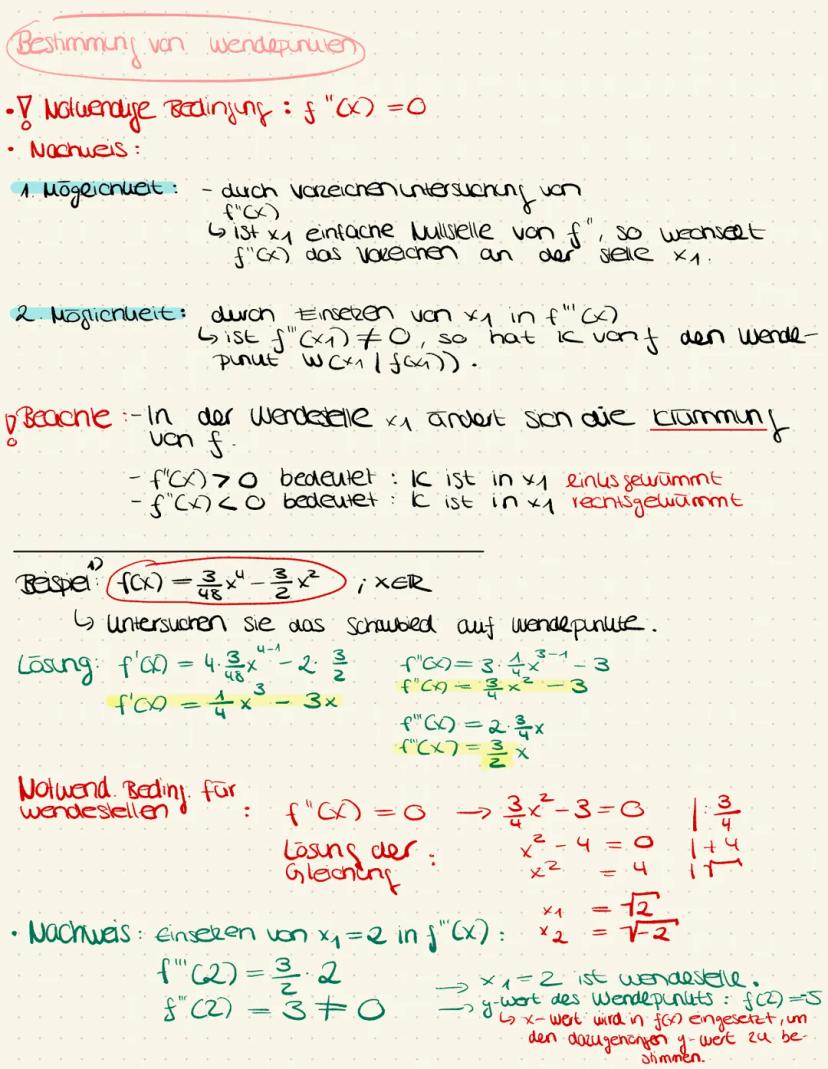 Bestimmung von Wendepunkten
• ! Notwendige Bedingung : f''(x) = 0
• Nachweis :
1. Möglichkeit : - durch Vorzeichenuntersuchung von
f''(x)
↳ ist x1 einfache Nullstelle von f'', so wechselt
f''(x) das Vorzeichen an der Stelle x1.
2. Möglichkeit : durch Einsetzen von x1 in f'''(x)
↳ ist f'''(x1) ≠ 0, so hat K von f den Wende-
punkt W(x1 | f(x1)).
! Beachte : - In der Wendestelle x1 ändert sich die Krümmung
von f.
- f''(x) > 0 bedeutet : K ist in x1 linksgekrümmt
- f''(x) < 0 bedeutet : K ist in x1 rechtsgekrümmt
Beispiel 1) : f(x) = 3/48 x^4 - 3/2 x^2 ; x∈ℝ
↳ Untersuchen sie das Schaubild auf Wendepunkte.
Lösung: f'(x) = 4 · 3/48 x^4-1 - 2 · 3/2 f''(x) = 3 · 1/4 x^3-1 - 3
f'(x) = 1/4 x^3 - 3x f''(x) = 3/4 x^2 - 3
f'''(x) = 2 · 3/4 x
f'''(x) = 3/2 x
Notwend. Beding. für
Wendestellen : f''(x) = 0 → 3/4 x^2 - 3 = 0 | : 3/4
Lösung der : x^2 - 4 = 0 | + 4
Gleichung x^2 = 4 | √
x1 = √2
x2 = √-2
• Nachweis : Einsetzen von x1 = 2 in f'''(x) :
f'''(2) = 3/2 · 2 → x1 = 2 ist Wendestelle.
f'''(2) = 3 ≠ 0 → y-Wert des Wendepunkts : f(2) = -5
↳ x-Wert wird in f(x) eingesetzt, um
den dazugehörigen y-Wert zu be-
stimmen.